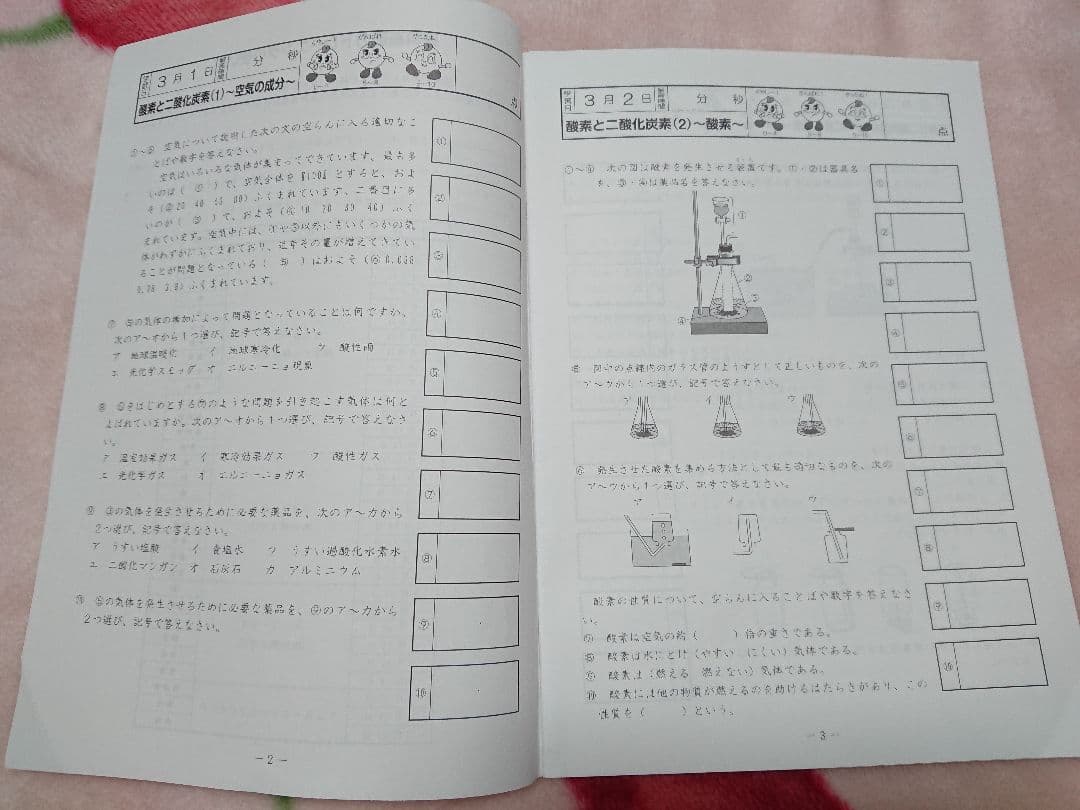 3月1日
分 秒
酸素と二酸化炭素(1)～空気の成分～
点
①～⑥ 空気について説明した次の文の空らんに入る適切なこ
とばや数字を答えなさい。
空気はいろいろな気体が集まってできています。最も多
いのは( ① )で、空気全体を
とすると、およ
そ(②20 40
80)ふくまれています。二番目に多
いのが( ③ )で、およそ(④10 20 30 40)ふく
まれています。空気中には、①や③以外にもいくつかの気
体がわずかにふくまれており、近年その量が増えてきてい
ることが問題となっている( ⑤ )はおよそ(⑥0.038
ふくまれています。
⑦ ⑤の気体の増加によって問題となっていることは何ですか。
次のア～オから1つ選び、記号で答えなさい。
ア 地球温暖化 イ 地球寒冷化 ウ 酸性雨
エ 光化学スモッグ オ エルニーニョ現象
⑧ ⑤をはじめとする⑦のような問題を引き起こす気体は何と
よばれていますか。次のア～オから1つ選び、記号で答えなさ
い。
ア 温室効果ガス イ 寒冷効果ガス ウ 酸性ガス
エ 光化学ガス オ エルニーニョガス
⑨ ③の気体を発生させるために必要な薬品を、次のア～カから
2つ選び、記号で答えなさい。
ア うすい塩酸 イ 食塩水 ウ うすい過酸化水素水
エ 二酸化マンガン オ 石灰石 カ アルミニウム
⑩ ⑤の気体を発生させるために必要な薬品を、⑨のア～カから
2つ選び、記号で答えなさい。
①
②
③
④
⑤
⑥
⑦
⑧
⑨
⑩
－2－
3月2日
分 秒
点
酸素と二酸化炭素(2)～酸素～
①～④ 次の図は酸素を発生させる装置です。①・②は器具名
を、③・④は薬品名を答えなさい。
①
②
③
④
⑤ 図中の点線内のガラス管のようすとして正しいものを、次の
ア～ウから1つ選び、記号で答えなさい。
ア イ ウ
⑥ 発生させた酸素を集める方法として最も適切なものを、次の
ア～ウから1つ選び、記号で答えなさい。
ア イ ウ
酸素の性質について、空らんに入ることばや数字を答えなさ
い。
⑦ 酸素は空気の約( )倍の重さである。
⑧ 酸素は水にとけ(やすい にくい)気体である。
⑨ 酸素は(燃える 燃えない)気体である。
⑩ 酸素には他の物質が燃えるのを助けるはたらきがあり、この
性質を( )という。
①
②
③
④
⑤
⑥
⑦
⑧
⑨
⑩
－3－